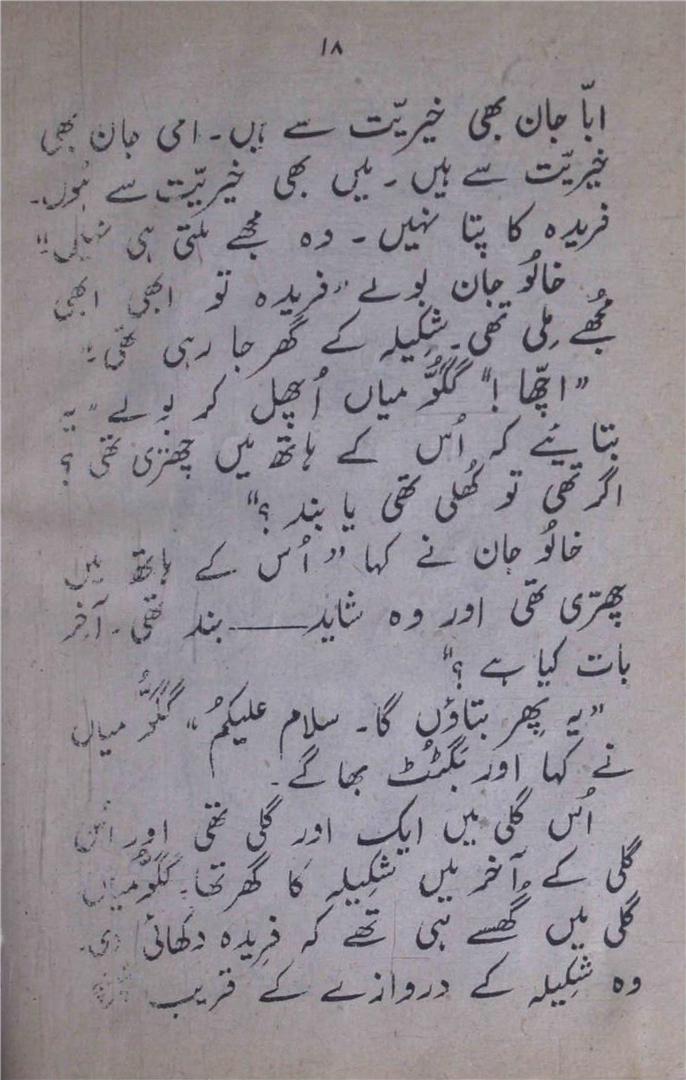 ۱۸
ابّا جان بھی خیریّت سے ہیں۔ امی جان بھی
خیریّت سے ہیں۔ میں بھی خیریّت سے ہُوں۔
فریدہ کا پتا نہیں۔ وہ مجھے ملتی ہی نہیں"
خالُو جان بولے "فریدہ تو ابھی ابھی
مُجھے مِلی تھی۔ شکِیلہ کے گھر جا رہی تھی"
"اچّھا!" گگّو میاں اُچھل کر بولے "یہ
بتائیے کہ اُس کے ہاتھ میں چھتری تھی؟
اگر تھی تو کُھلی تھی یا بند؟"
خالُو جان نے کہا "اُس کے ہاتھ میں
چھتری تھی اور وہ شاید ـــــ بند تھی۔ آخر
بات کیا ہے؟"
"یہ پِھر بتاؤں گا۔ سلام علیکمُ" گگّو میاں
نے کہا اور بگٹُٹ بھاگے۔
اُس گلی میں ایک اور گلی تھی اور اُس
گلی کے آخر میں شکِیلہ کا گھر تھا۔ گگّو میاں
گلی میں گُھسے ہی تھے کہ فرِیدہ دِکھائی دی۔
وہ شکِیلہ کے دروازے کے قریب